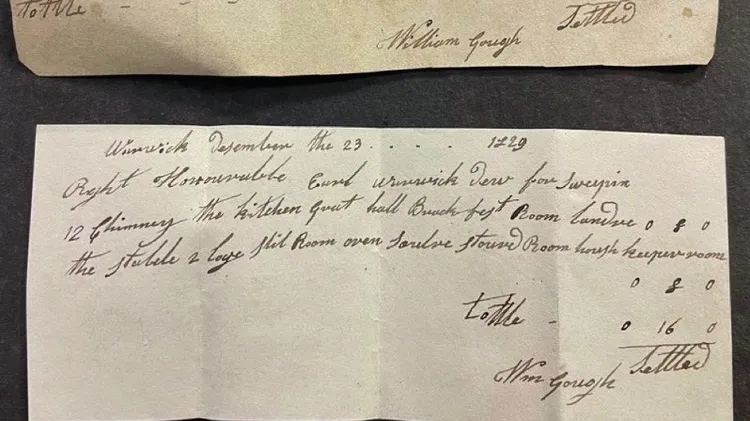 tottle - - -
William Gough Settled
Warwick Desember the 23 . . . . 1829
Right Honourable Earl Warwick Dew for Sweepin
12 Chimney the kitchen Great hall Brackfest Room landre 0 8 0
the stable 2 loge Stil Room oven Stoured Room housh keeper room
0 8 0
tottle - 0 16 0
Wm Gough Settled